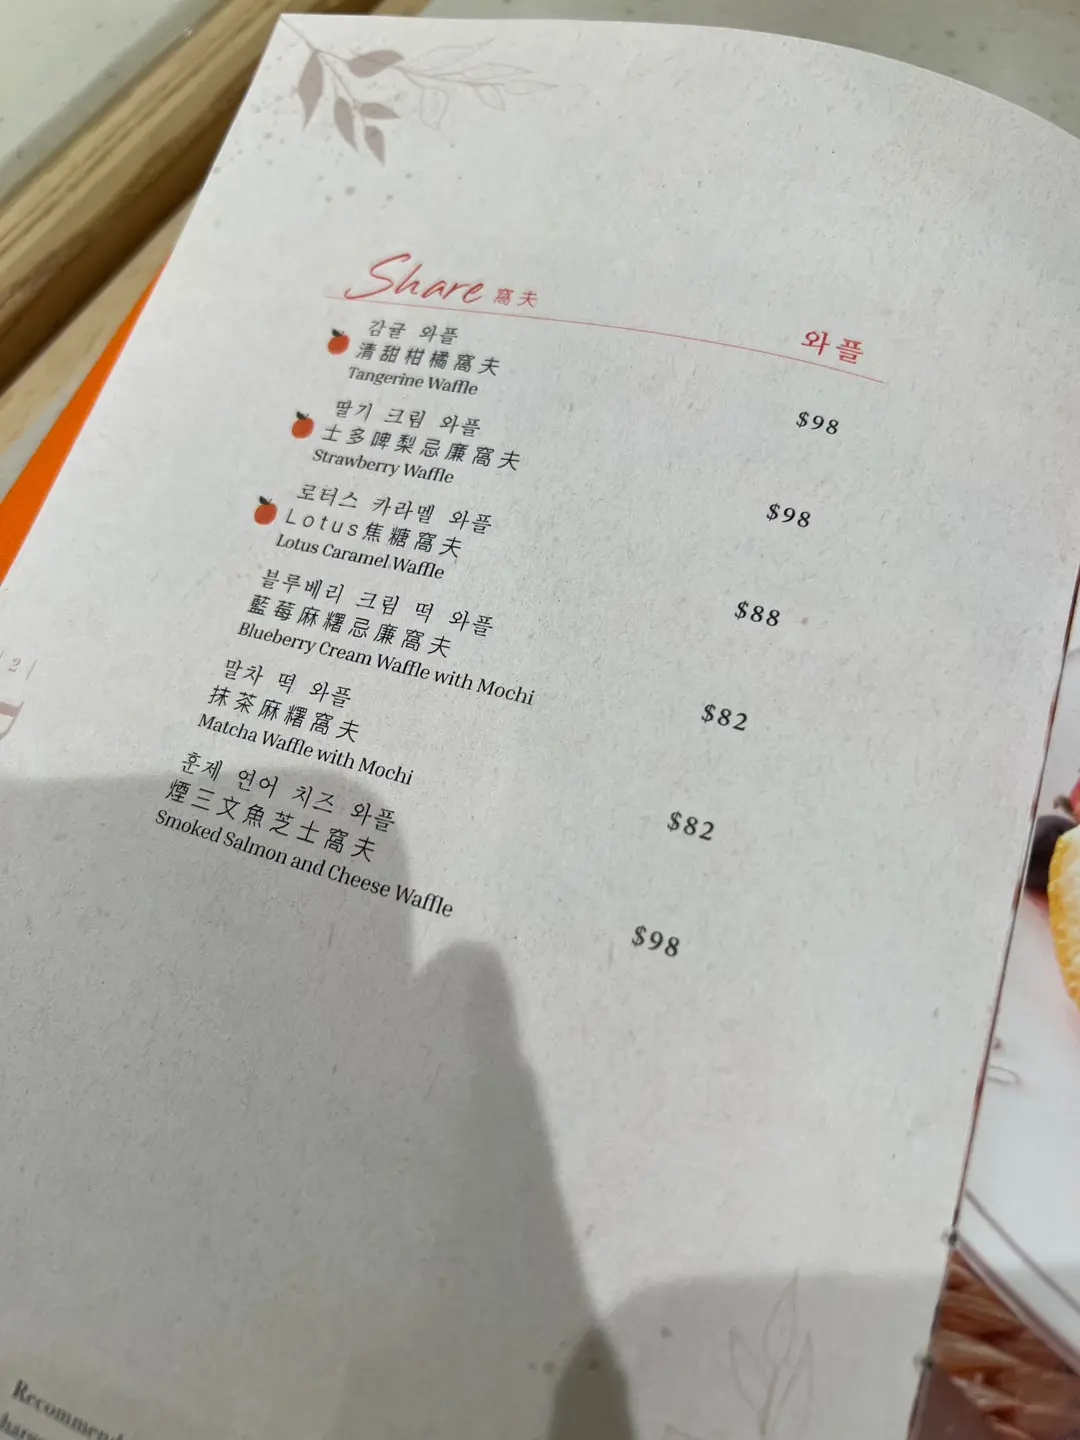 Share 窩夫
와플
감귤 와플
清甜柑橘窩夫
Tangerine Waffle
$98
딸기 크림 와플
士多啤梨忌廉窩夫
Strawberry Waffle
$98
로터스 카라멜 와플
Lotus焦糖窩夫
Lotus Caramel Waffle
$88
블루베리 크림 떡 와플
藍莓麻糬忌廉窩夫
Blueberry Cream Waffle with Mochi
$82
말차 떡 와플
抹茶麻糬窩夫
Matcha Waffle with Mochi
$82
훈제 연어 치즈 와플
煙三文魚芝士窩夫
Smoked Salmon and Cheese Waffle
$98
| 2 |